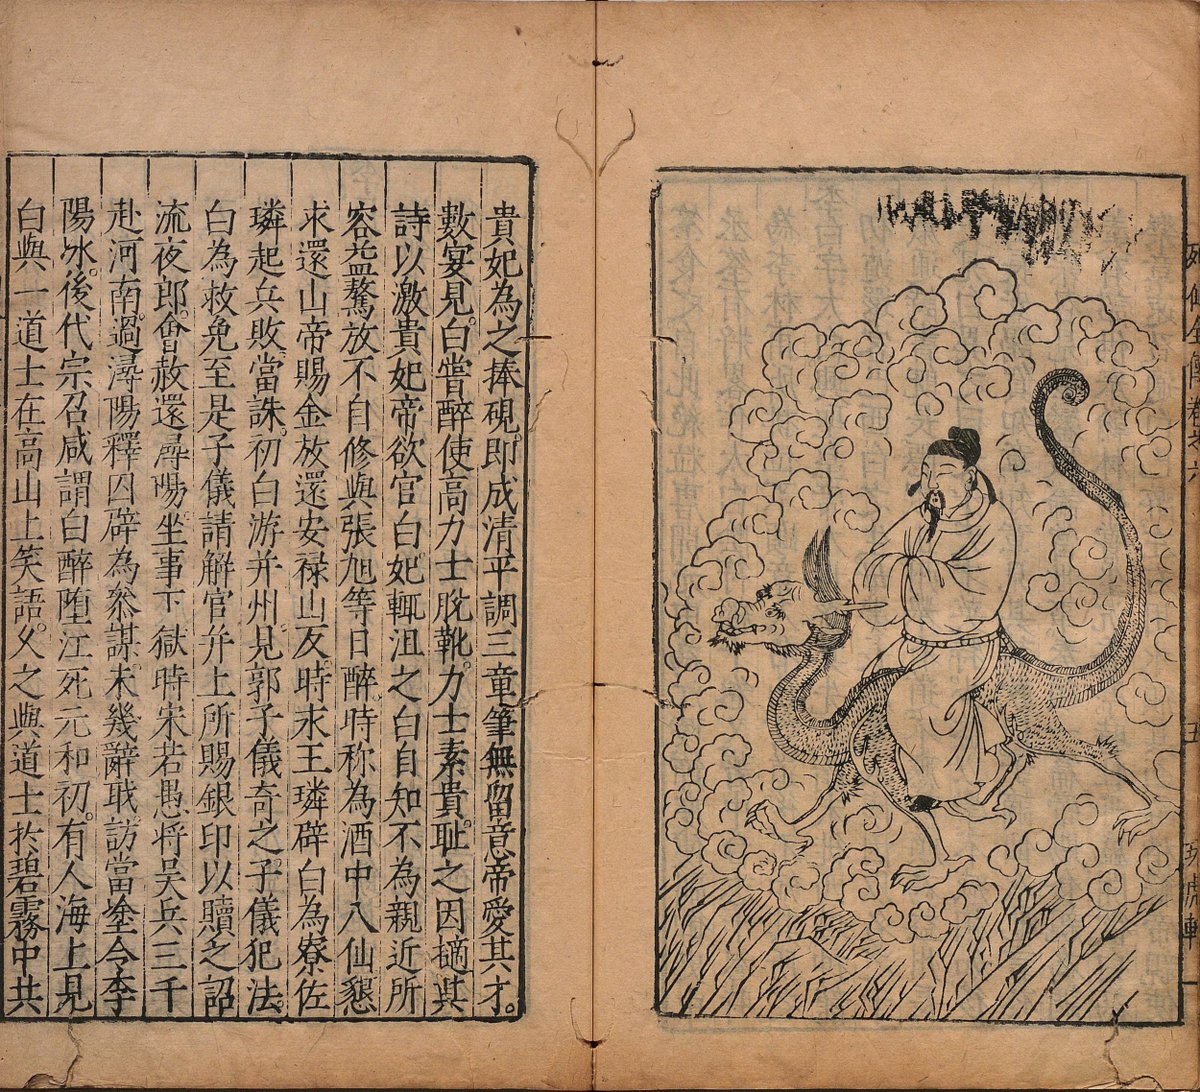 仙全傳卷之六
五
玩虎軒
貴妃為之捧硯。即成清平調三童筆無留意帝愛其才。
數宴見。白嘗醉使高力士脫靴。力士素貴。恥之因擿其
詩以激貴妃帝欲官白。妃輒沮之白自知不為親近所
容益驁放不自修與張旭等日醉時称為酒中八仙懇
求還山帝賜金放還安祿山反。時永王璘辟白為寮佐
璘起兵敗。當誅。初白游并州。見郭子儀奇之。子儀犯法。
白為救免至是子儀請解官并上所賜銀印以贖之詔
流夜郎。會赦還尋陽。坐事下獄時宋若愚將吳兵三千
赴河南。過潯陽釋囚辟為參謀。未幾辭職訪當塗令李
陽冰。後代宗召咸謂白醉墮江死元和初。有人海上見
白與一道士在高山上笑語。久之與道士於碧霧中共